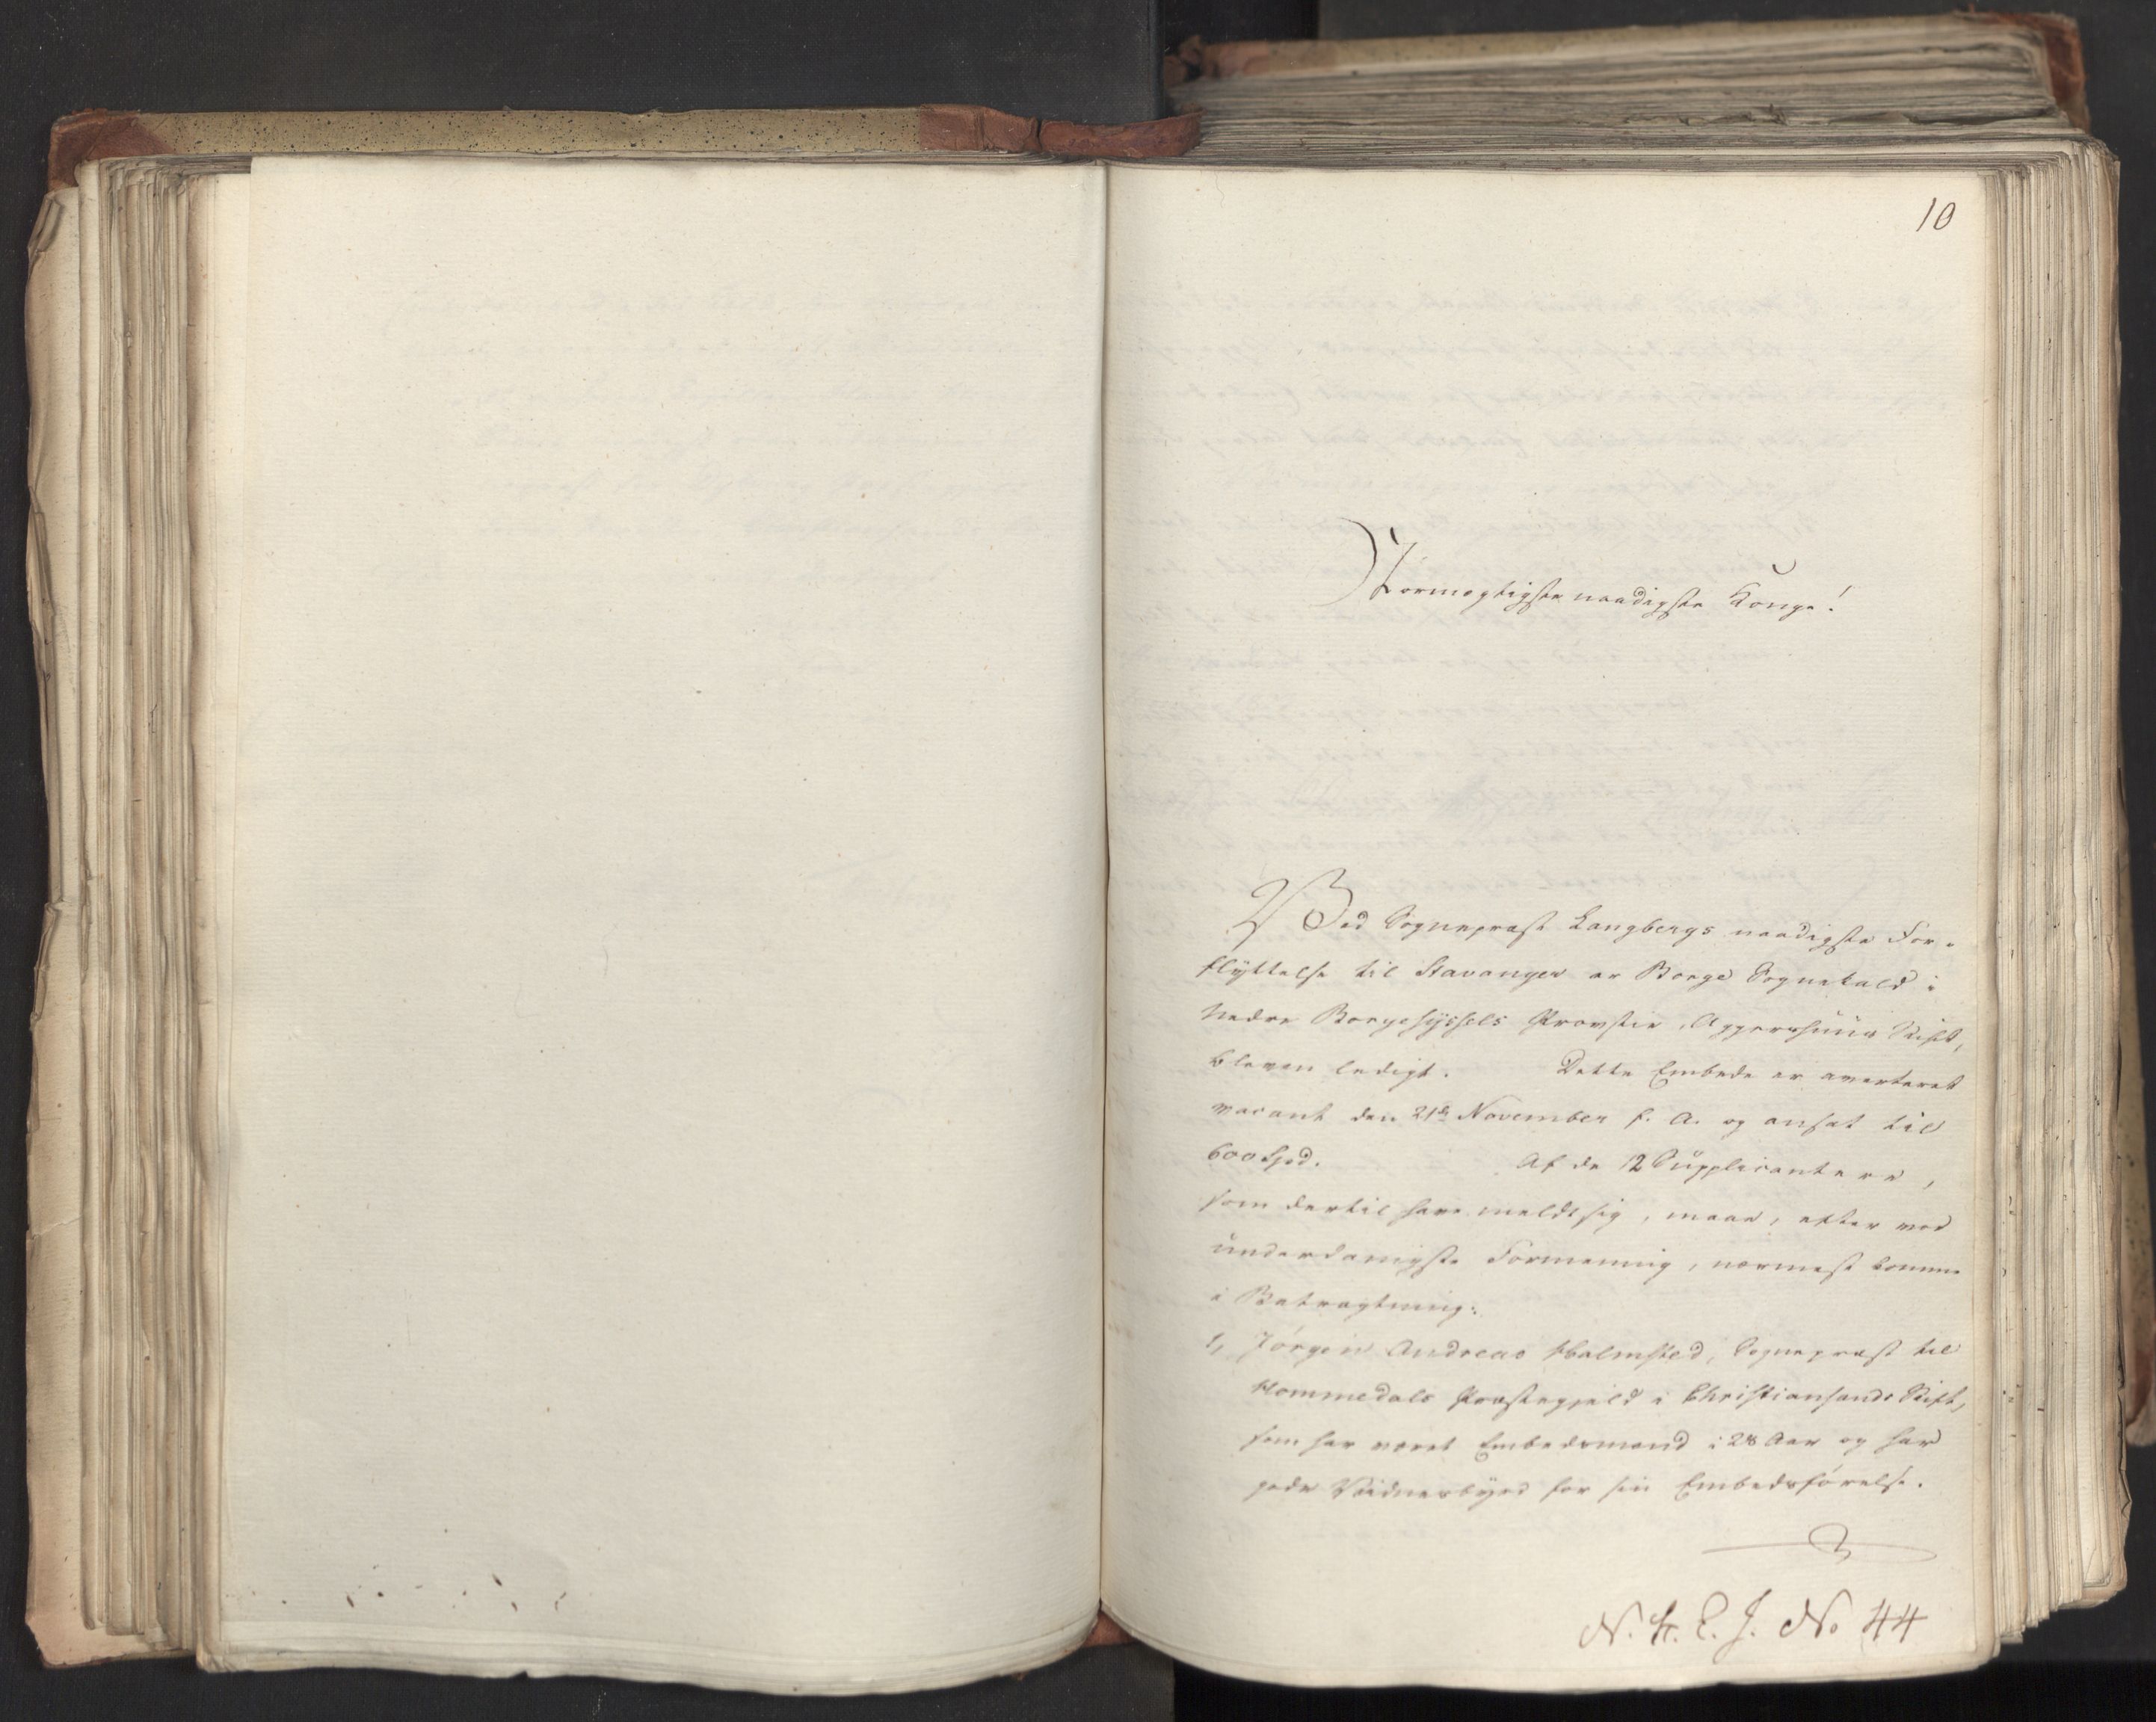 10
Stormægtigste naadigste Konge!
Ved Sognepræst Langbergs naadigste For-
flyttelse til Stavanger er Borge Sognekald i
Nedre Borgesyssels Provstie, Aggershuus Stift,
bleven ledigt. Dette Embede er averteret
vacant den 21de November f. A. og ansat til
600 Spd. Af de 12 Supplicantere,
som dertil have meldt sig, maae, efter vor
underdanigste Formening, nærmest komme
i Betragtning:
1, Jørgen Andreas Holmsted, Sognepræst til
Hommedals Præstegjeld i Christiansands Stift,
som har været Embedsmand i 28 Aar og har
gode Vidnesbyrd for sin Embedsførelse.
N. K. E. J. No 44